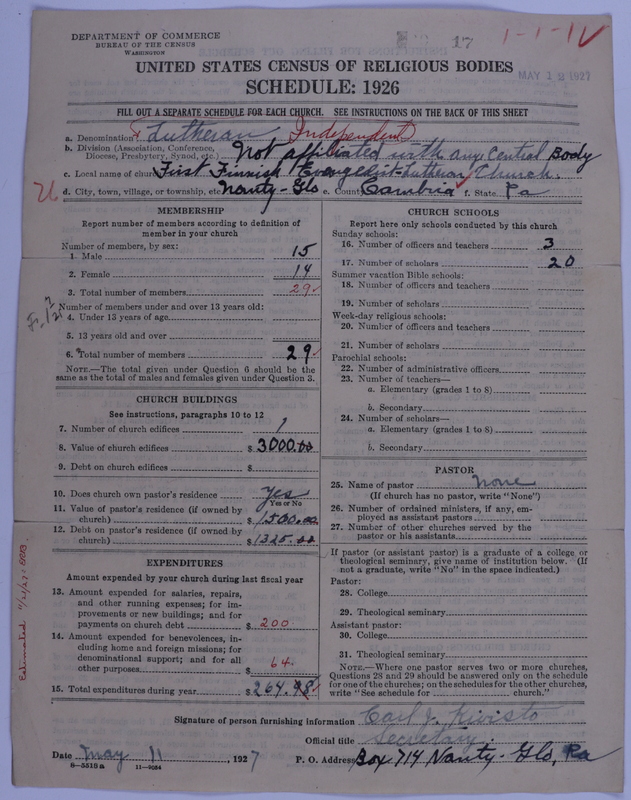 DEPARTMENT OF COMMERCE
BUREAU OF THE CENSUS
WASHINGTON
17
1-1-1V
MAY 12 1927
UNITED STATES CENSUS OF RELIGIOUS BODIES
SCHEDULE: 1926
FILL OUT A SEPARATE SCHEDULE FOR EACH CHURCH. SEE INSTRUCTIONS ON THE BACK OF THIS SHEET
a. Denomination Lutheran Independent
b. Division (Association, Conference, Diocese, Presbytery, Synod, etc.) Not affiliated with any Central Body
c. Local name of church First Finnish Evangelist-Lutheran Church.
d. City, town, village, or township, etc. Nanty-Glo e. County Cambria f. State Pa
MEMBERSHIP
Report number of members according to definition of
member in your church
Number of members, by sex:
1. Male 15
2. Female 14
3. Total number of members 29
Number of members under and over 13 years old:
4. Under 13 years of age
5. 13 years old and over
6. Total number of members 29
NOTE.—The total given under Question 6 should be the
same as the total of males and females given under Question 3.
CHURCH BUILDINGS
See instructions, paragraphs 10 to 12
7. Number of church edifices 1
8. Value of church edifices $ 3000.00
9. Debt on church edifices $
10. Does church own pastor's residence Yes
Yes or No
11. Value of pastor's residence (if owned by
church) $ 1500.00
12. Debt on pastor's residence (if owned by
church) $ 1325.00
EXPENDITURES
Amount expended by your church during last fiscal year
13. Amount expended for salaries, repairs,
and other running expenses; for im-
provements or new buildings; and for
payments on church debt $ 200
14. Amount expended for benevolences, in-
cluding home and foreign missions; for
denominational support; and for all
other purposes $ 64.
15. Total expenditures during year $ 264.98
Estimated
CHURCH SCHOOLS
Report here only schools conducted by this church
Sunday schools:
16. Number of officers and teachers 3
17. Number of scholars 20
Summer vacation Bible schools:
18. Number of officers and teachers
19. Number of scholars
Week-day religious schools:
20. Number of officers and teachers
21. Number of scholars
Parochial schools:
22. Number of administrative officers
23. Number of teachers—
a. Elementary (grades 1 to 8)
b. Secondary
24. Number of scholars—
a. Elementary (grades 1 to 8)
b. Secondary
PASTOR
25. Name of pastor None
(If church has no pastor, write "None")
26. Number of ordained ministers, if any, em-
ployed as assistant pastors
27. Number of other churches served by the
pastor or his assistants
If pastor (or assistant pastor) is a graduate of a college or
theological seminary, give name of institution below. (If
not a graduate, write "No" in the space indicated.)
Pastor:
28. College
29. Theological seminary
Assistant pastor:
30. College
31. Theological seminary
NOTE.—Where one pastor serves two or more churches,
Questions 28 and 29 should be answered only on the schedule
for one of the churches; on the schedules for the other churches,
write "See schedule for church."
Signature of person furnishing information Carl J. Kivisto
Official title Secretary
Date May 11, 1927 P. O. Address Box 714 Nanty-Glo, Pa
8—5518a 11—9064